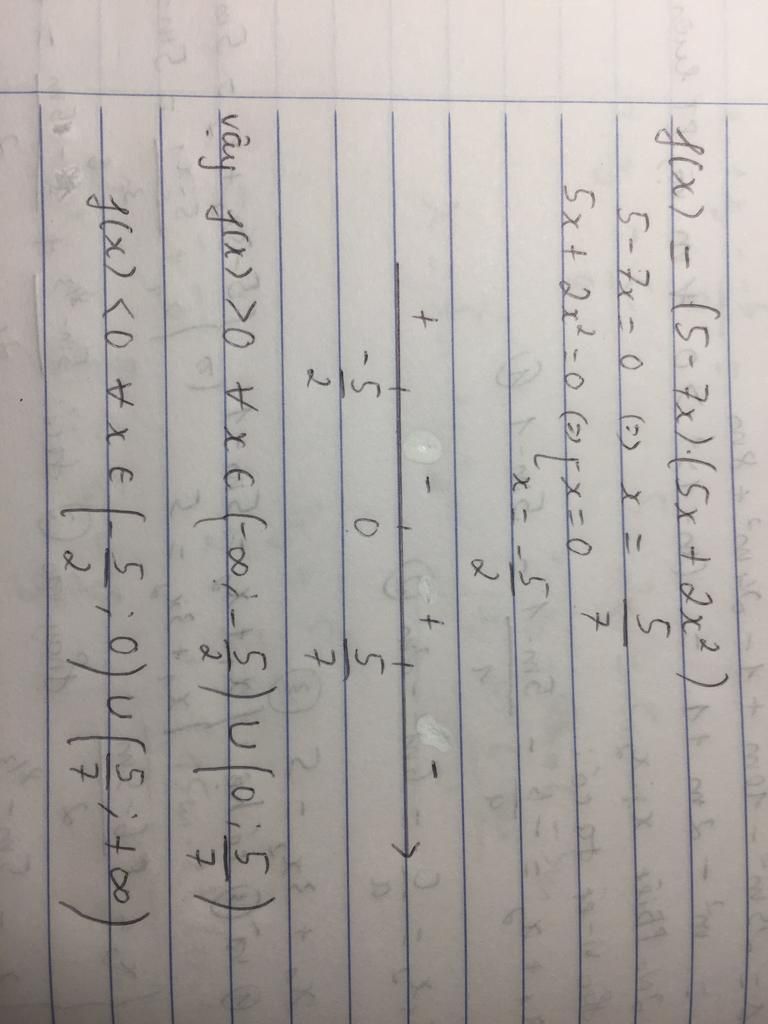 f(x) = (5 - 7x).(5x + 2x²)
5 - 7x = 0 (=) x = 5/7
5x + 2x² = 0 (=) [ x = 0
x = -5/2
+ - + -
-5/2 0 5/7
vậy f(x) > 0 ∀x ∈ (-∞; -5/2) ∪ (0; 5/7)
f(x) < 0 ∀x ∈ (-5/2; 0) ∪ (5/7; +∞)